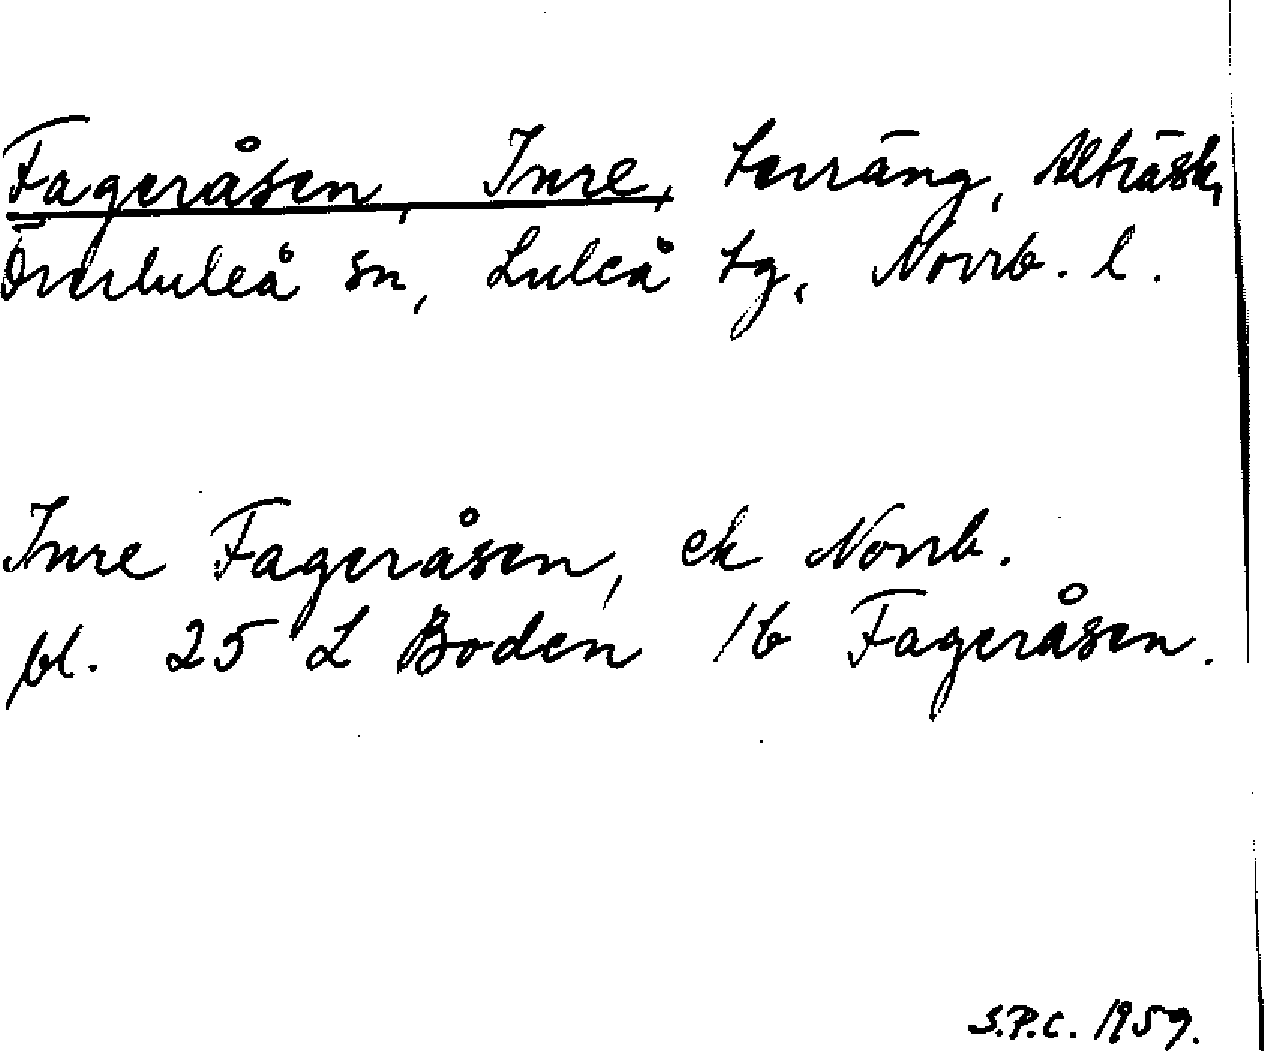 Fageråsen, Inre, terräng, Alträsk,
Överluleå sn, Luleå tg, Norrb. l.
Inre Fageråsen, ek Norrb.
bl. 25 L Boden 1b Fageråsen.
S.P.C. 1959.